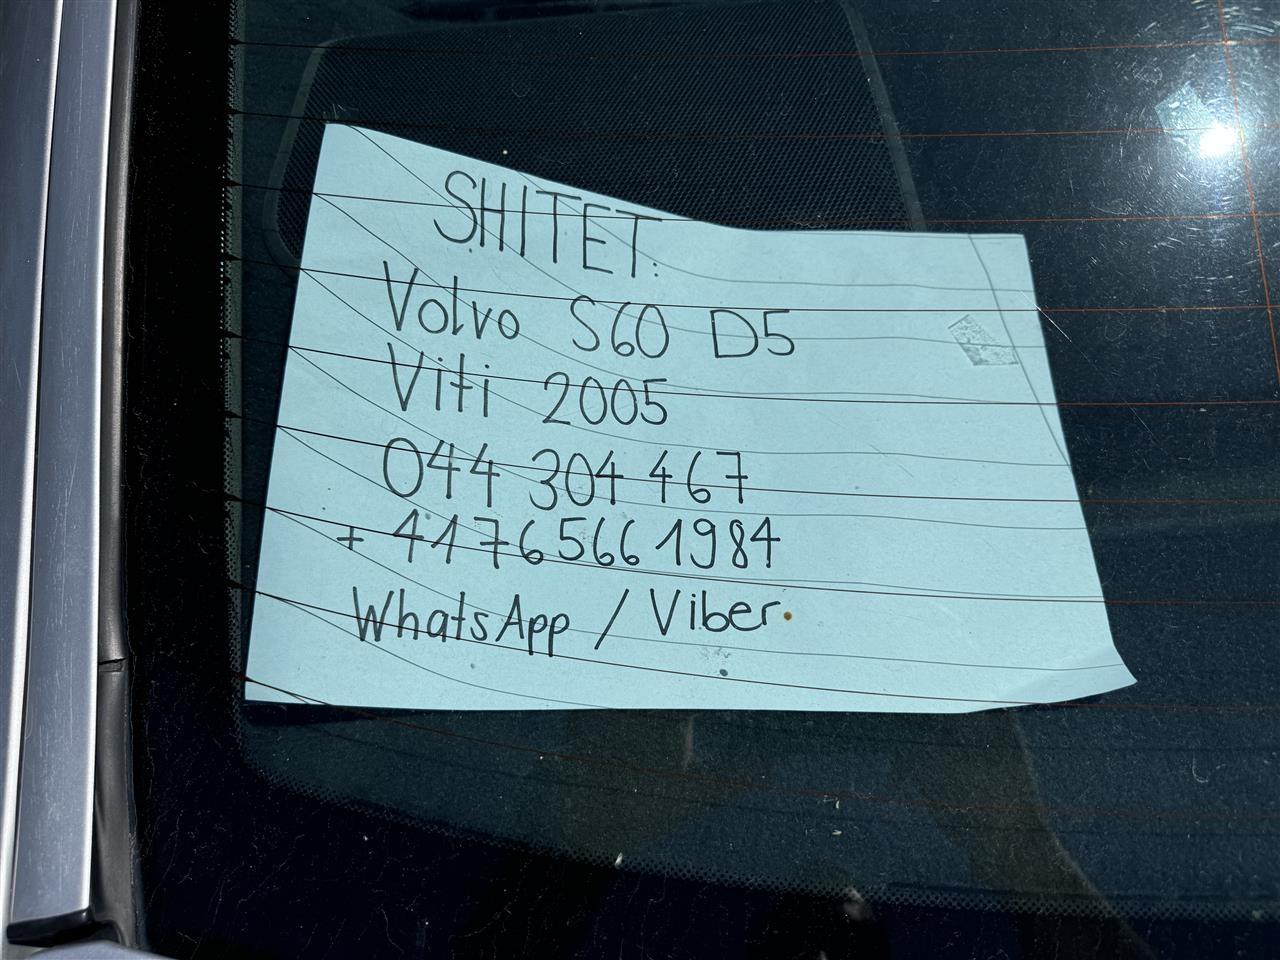 SHITET:
Volvo S60 D5
Viti 2005
044 304 467
+ 41765661984
WhatsApp / Viber